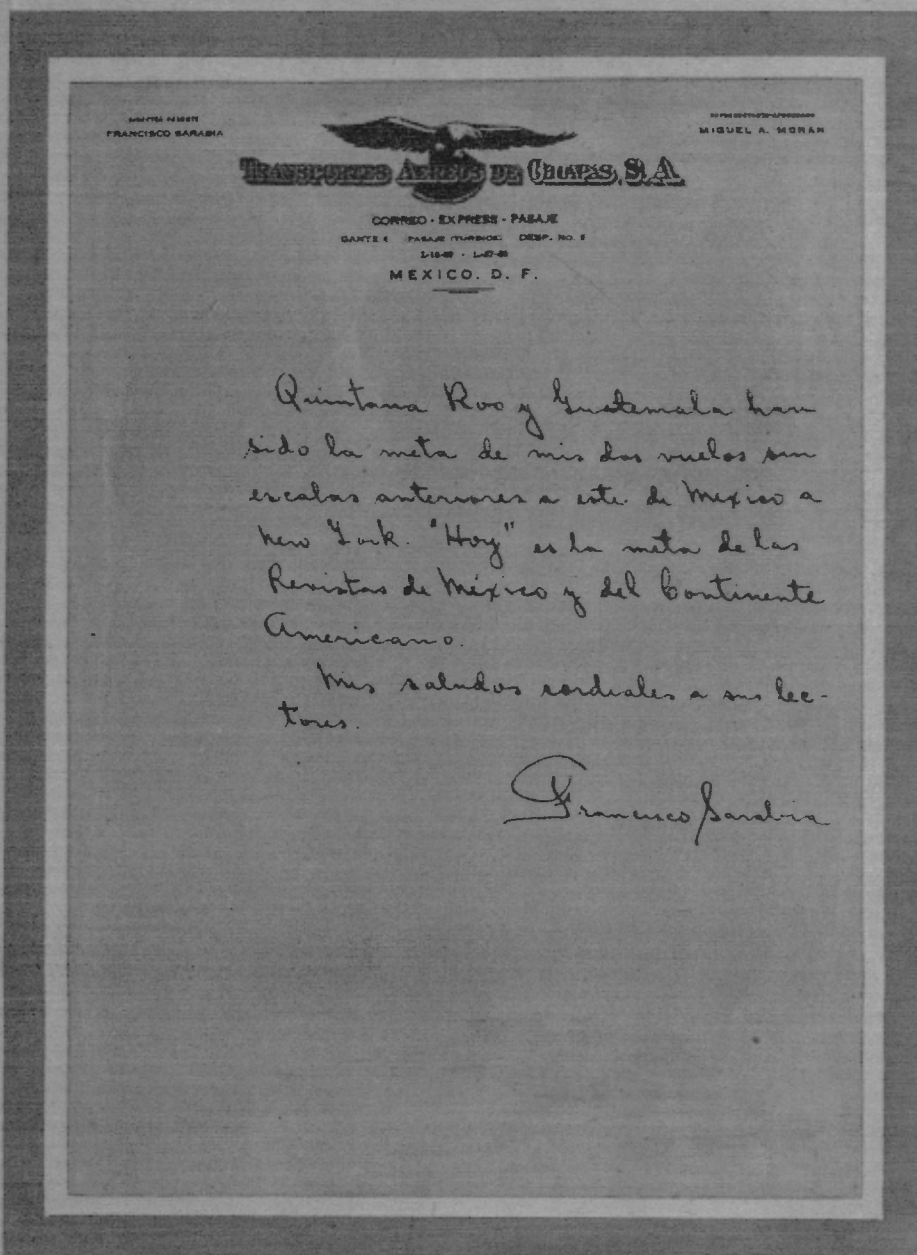 FRANCISCO SARABIA
MIGUEL A. MORAN
TRANSPORTES AEREOS DE CHIAPAS, S. A.
CORREO - EXPRESS - PASAJE
GANTE PASAJE ITURBIDE DESP. NO.
MEXICO. D. F.
Quintana Roo y Guatemala han
sido la meta de mis dos vuelos sin
escalas anteriores a este de Mexico a
New York. "Hoy" es la meta de las
Revistas de México y del Continente
Americano.
Mis saludos cordiales a sus lec-
tores.
Francisco Sarabia